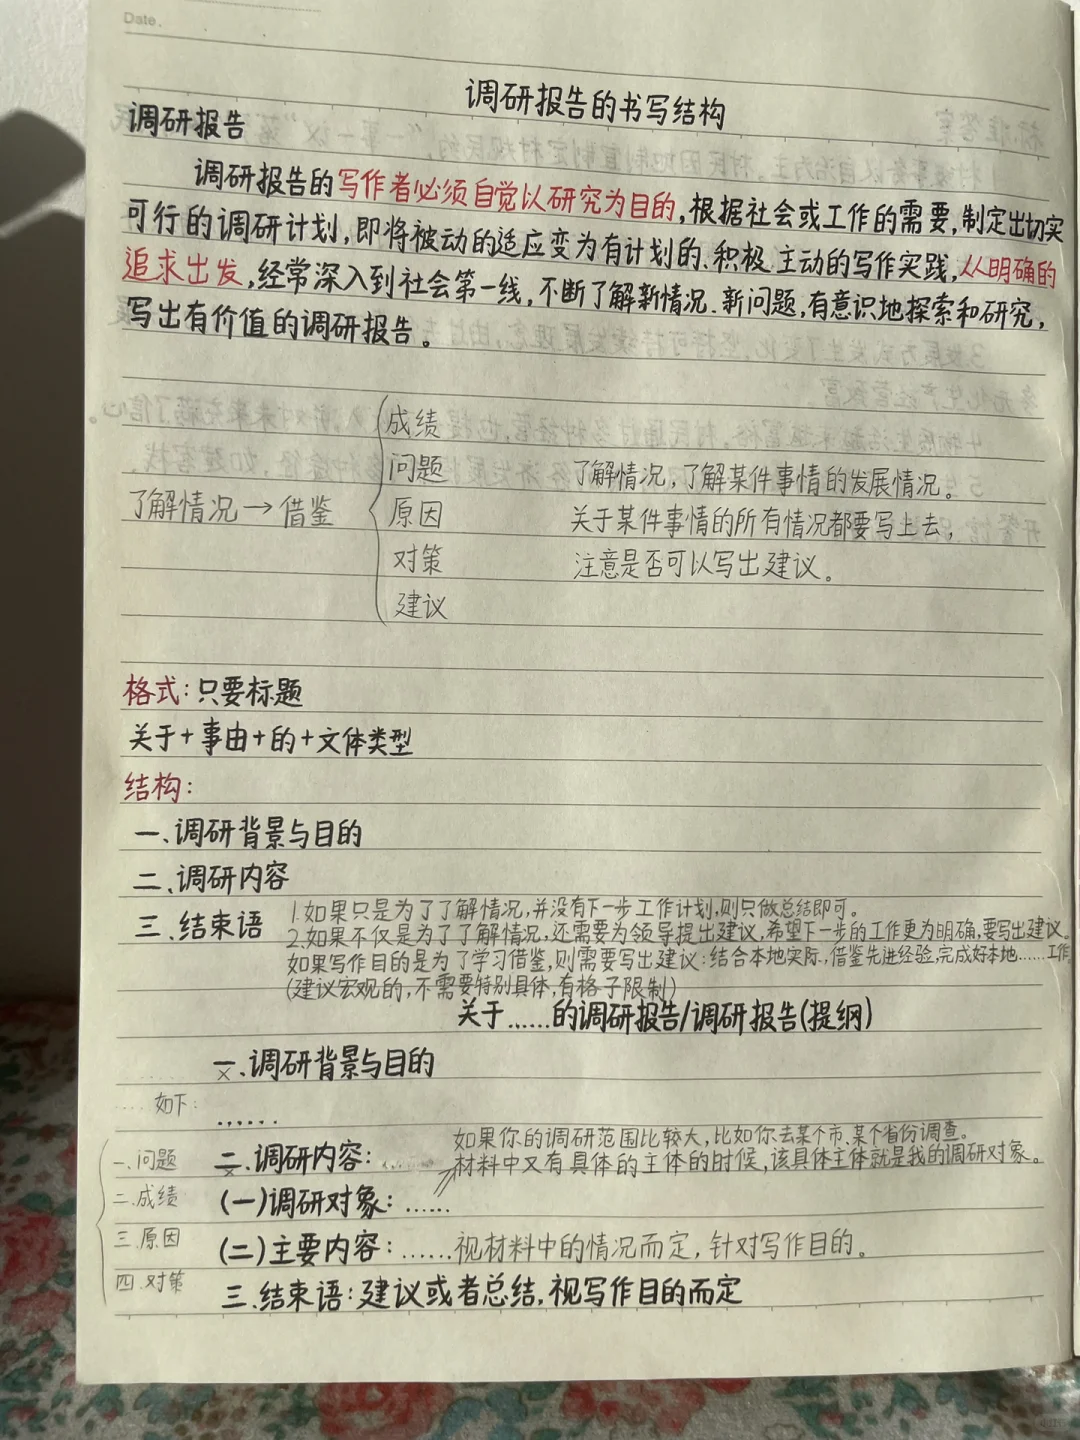 Date.
调研报告的书写结构
调研报告
调研报告的写作者必须自觉以研究为目的,根据社会或工作的需要,制定出切实
可行的调研计划,即将被动的适应变为有计划的、积极、主动的写作实践,从明确的
追求出发,经常深入到社会第一线,不断了解新情况、新问题,有意识地探索和研究,
写出有价值的调研报告。
成绩
问题 了解情况,了解某件事情的发展情况。
了解情况→借鉴 原因 关于某件事情的所有情况都要写上去,
对策 注意是否可以写出建议。
建议
格式:只要标题
关于+事由+的+文体类型
结构:
一、调研背景与目的
二、调研内容
三、结束语 1.如果只是为了了解情况,并没有下一步工作计划,则只做总结即可。
2.如果不仅是为了了解情况,还需要为领导提出建议,希望下一步的工作更为明确,要写出建议。
如果写作目的是为了学习借鉴,则需要写出建议:结合本地实际,借鉴先进经验,完成好本地……工作
(建议宏观的,不需要特别具体,有格子限制)
关于……的调研报告/调研报告(提纲)
一、调研背景与目的
如下: ……
如果你的调研范围比较大,比如你去某个市、某个省份调查。
一、问题 二、调研内容:…… 材料中又有具体的主体的时候,该具体主体就是我的调研对象。
二、成绩 (一)调研对象:……
三、原因 (二)主要内容:……视材料中的情况而定,针对写作目的。
四、对策 三、结束语:建议或者总结,视写作目的而定